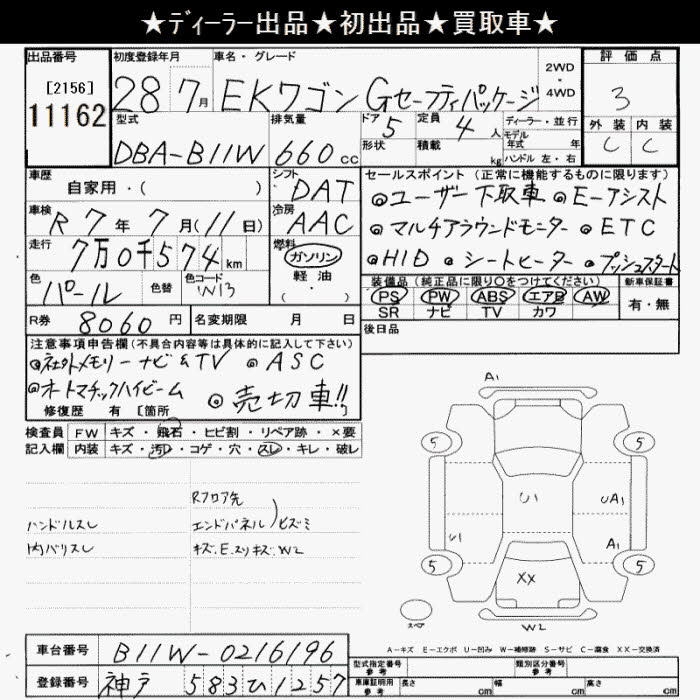 ★ディーラー出品★初出品★買取車★
出品番号 初度登録年月 車名・グレード 2WD・4WD 評価点
[2156]
11162
28 7月 EKワゴン Gセーフティパッケージ 3
型式 排気量 ドア 5 定員 4人 ディーラー・並行 外装 内装
DBA-B11W 660cc 形状 積載 kg モデル年式 年 C C
ハンドル 左・右
車歴 シフト セールスポイント(正常に機能するものに限ります)
自家用・( ) DAT ◎ユーザー下取車 ◎Eーアシスト
車検 R7年7月(11日) 冷房 AAC ◎マルチアラウンドモニター ◎ETC
走行 7万0千574km 燃料 ガソリン ◎HID ◎シートヒーター ◎プッシュスタート
軽油・( )
色 パール 色替 色コード W13 装備品(純正品に限り〇をつけてください) 新車保証書
PS PW ABS エアB AW 有・無
SR ナビ TV カワ
R券 8060円 名変期限 月 日 後日品
注意事項申告欄(不具合内容等は具体的に記入して下さい)
◎社外メモリーナビ&TV ◎ASC
◎オートマチックハイビーム ◎売切車!!
修復歴 有 [箇所 ]
検査員 FW キズ・飛石・ヒビ割・リペア跡・×要
記入欄 内装 キズ・汚レ・コゲ・穴・スレ・キレ・破レ
Rフロア先
ハンドルスレ エンドパネル)ヒズミ
内バリスレ キズ.E.スリキズ.W2
A1
5 5
U1 UA1
U1 A1
5 XX 5
スペア W2
A-キズ E-エクボ U-凹み W-補修跡 S-サビ C-腐食 XX-交換済
車台番号 B11W-0216196
型式指定番号 参考 類別区分番号 参考
登録番号 神戸 583ひ1257
車庫証明用 参考 長さ cm 幅 cm 高さ cm